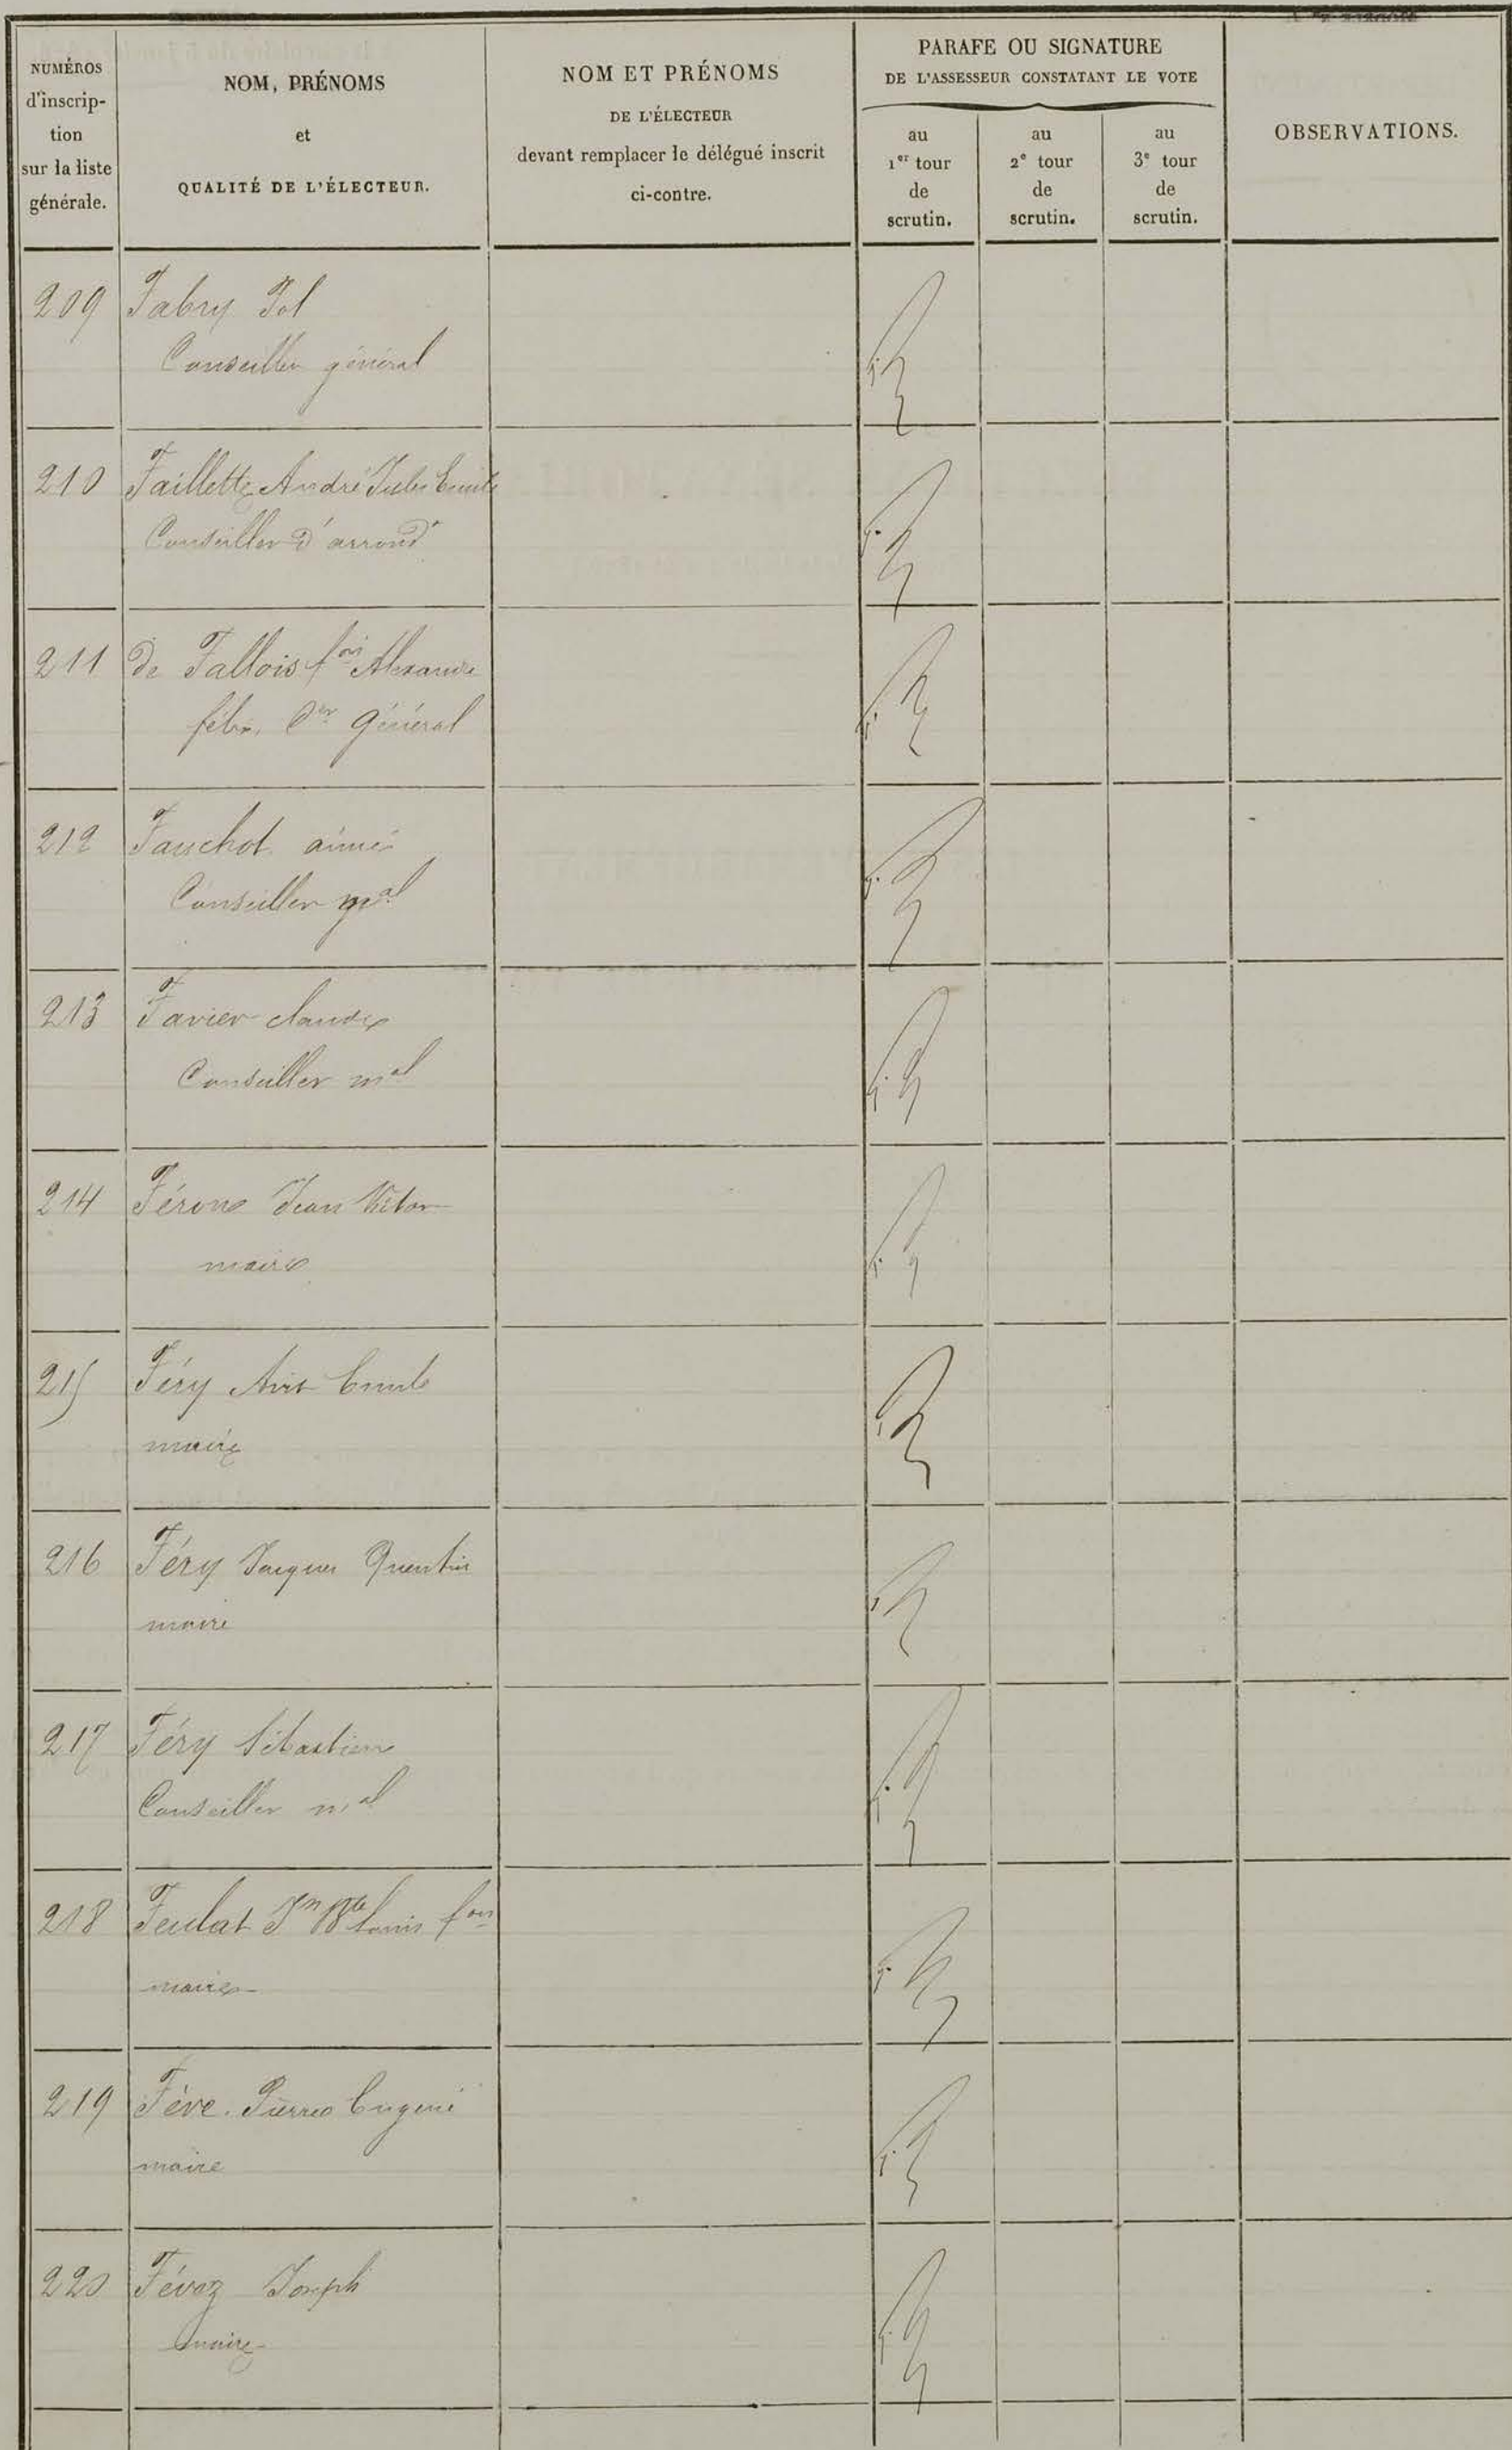 NUMÉROS
d'inscrip-
tion
sur la liste
générale.
NOM, PRÉNOMS
et
QUALITÉ DE L'ÉLECTEUR.
NOM ET PRÉNOMS
DE L'ÉLECTEUR
devant remplacer le délégué inscrit
ci-contre.
PARAFE OU SIGNATURE
DE L'ASSESSEUR CONSTATANT LE VOTE
au
1er tour
de
scrutin.
au
2e tour
de
scrutin.
au
3e tour
de
scrutin.
OBSERVATIONS.
209 Fabry Pol
Conseiller général
210 Faillette André Jules Emile
Conseiller d'arrondt
211 de Fallois fois Alexandre
félix, Cer Général
212 Fauchot aimé
Conseiller mal
213 Favier claude
Conseiller mal
214 Férone Jean Victor
maire
215 Féry Avit Emile
maire
216 Féry Jacques Quentin
maire
217 Féry Sébastien
Conseiller mal
218 Feulat Jn Bte Louis fois
maire
219 Féve. Pierre Eugène
maire
220 Févez Joseph
maire